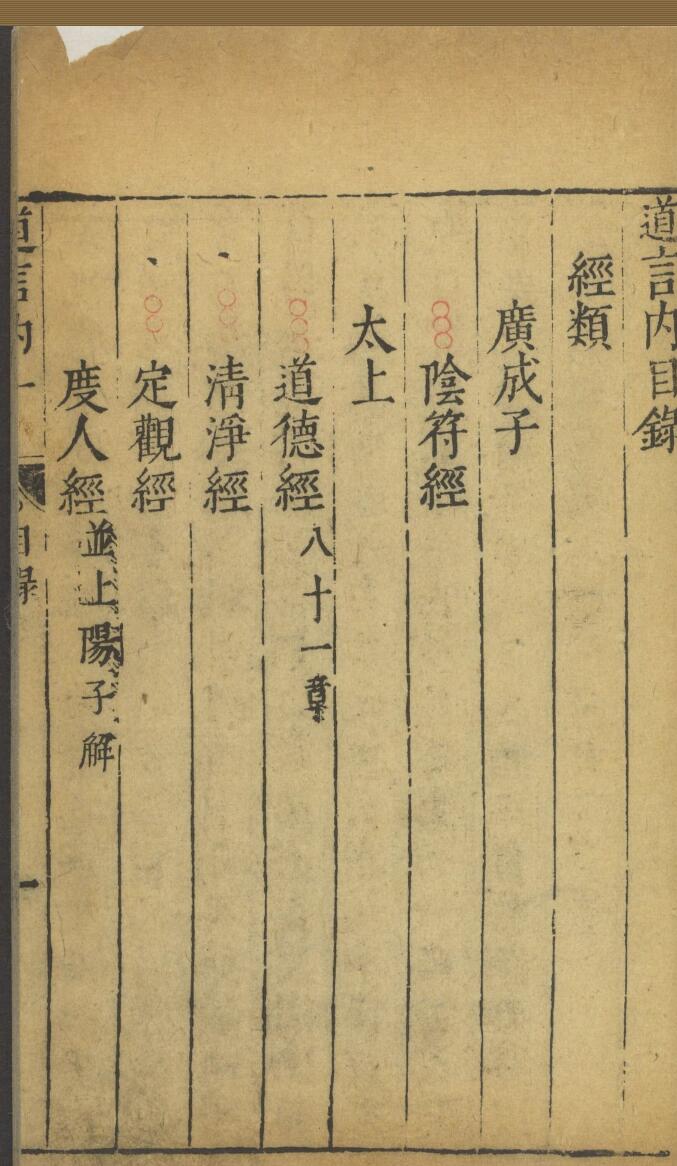 道言内目錄
經類
廣成子
陰符經
太上
道德經八十一章
清淨經
定觀經
度人經並上陽子解
道言内一 目錄 一